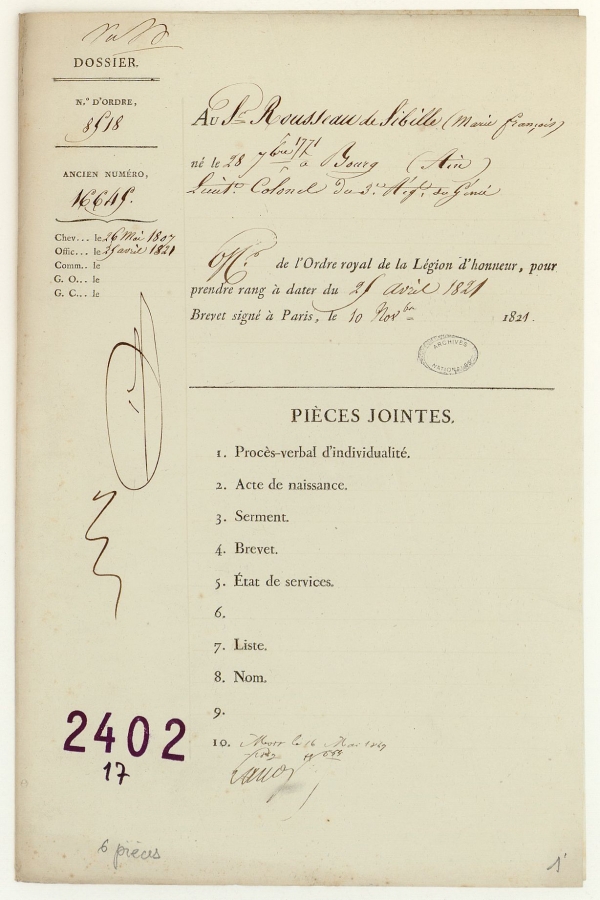 DOSSIER.
N.º D'ORDRE,
8518
ANCIEN NUMÉRO,
16645.
Chev... le 26 Mai 1807
Offic... le 25 avril 1821
Comm.. le
G. O... le
G. C... le
Au Sr. Rousseau de Sibille (Marie françois)
né le 28 7bre 1771 à Bourg (Ain)
Lieutt. Colonel du 3e. Régt. du Génie
Offer. de l'Ordre royal de la Légion d'honneur, pour
prendre rang à dater du 25 avril 1821
Brevet signé à Paris, le 10 Novbre 1821.
ARCHIVES
NATIONALES
PIÈCES JOINTES.
1. Procès-verbal d'individualité.
2. Acte de naissance.
3. Serment.
4. Brevet.
5. État de services.
6.
7. Liste.
8. Nom.
9.
10. Mort le 16 Mai
2402
17
6 pièces
1